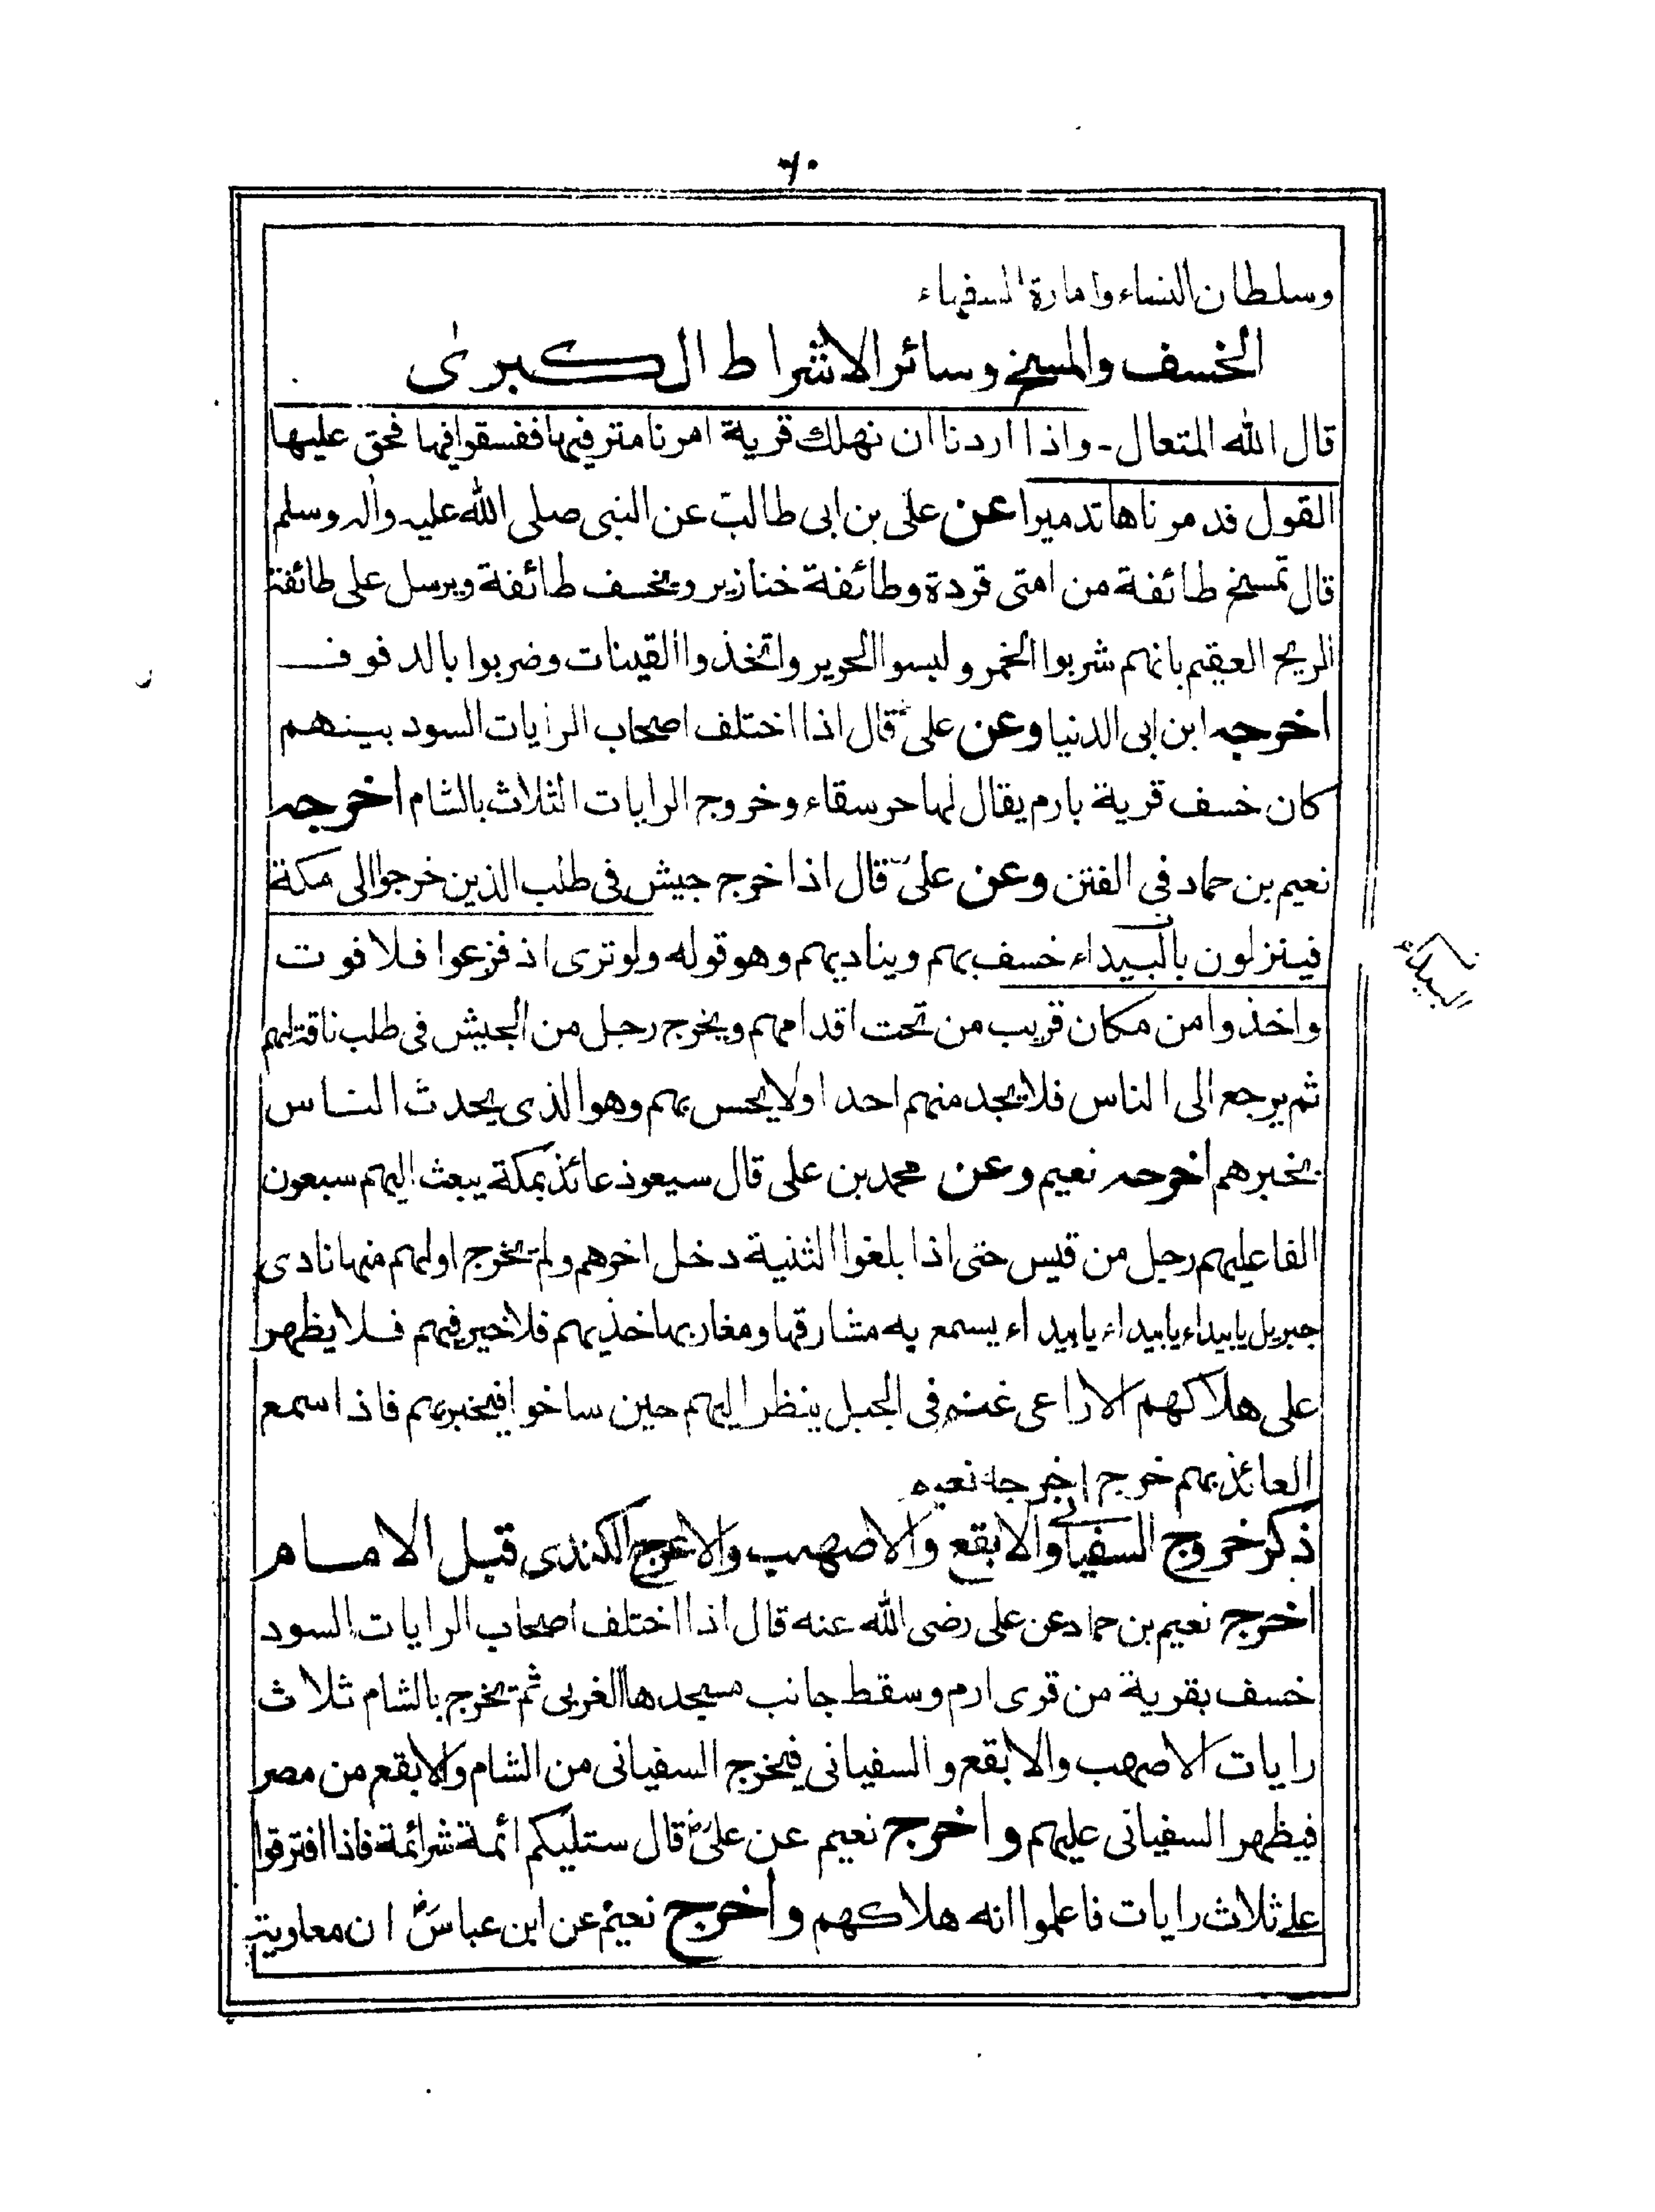 ٦٠
وسلطان النساء وامارة السفهاء
الخسف والمسخ وسائر الاشراط الكبرىٰ
قال الله المتعال - واذا اردنا ان نهلك قرية امرنا مترفيها ففسقوا فيها فحق عليها
القول فدمرناها تدميرا عن على بن ابى طالب عن النبى صلى الله عليه واٰله وسلم
قال تمسخ طائفة من امتى قردة وطائفة خنازير ويخسف طائفة ويرسل على طائفة
الريح العقيم بانهم شربوا الخمر ولبسوا الحرير واتخذوا القينات وضربوا بالدفوف
اخرجه ابن ابى الدنيا وعن علىؓ قال اذا اختلف اصحاب الرايات السود بينهم
كان خسف قرية بارم يقال لها حرسقاء وخروج الرايات الثلاث بالشام اخرجه
نعيم بن حماد فى الفتن وعن علىؓ قال اذا خرج جيش فى طلب الذين خرجوا الى مكة
فينزلون بالبيداء خسف بهم ويناديهم وهو قوله ولو ترى اذ فزعوا فلا فوت
البيداء
واخذوا من مكان قريب من تحت اقدامهم ويخرج رجل من الجيش فى طلب ناقتهم
ثم يرجع الى الناس فلا يجد منهم احدا ولا يحس بهم وهو الذى يحدث الناس
بخبرهم اخرجه نعيم وعن محمد بن على قال سيعوذ عائذ بمكة يبعث اليهم سبعون
الفا عليهم رجل من قيس حتى اذا بلغوا الثنية دخل اخرهم ولم يخرج اولهم منها نادى
جبريل يا بيداء يا بيداء يا بيداء يسمع به مشارقها ومغاربها خذيهم فلا خير فيهم فلا يظهر
على هلاكهم الا راعى غنم فى الجبل ينظر اليهم حين ساخوا فيخبرهم فاذا سمع
العائذ بهم خرج اخرجه نعيم
ذكر خروج السفيانى والابقع والاصهب والاعرج الكندى قبل الامام
اخرج نعيم بن حماد عن على رضى الله عنه قال اذا اختلف اصحاب الرايات السود
خسف بقرية من قرى ارم وسقط جانب مسجدها الغربى ثم يخرج بالشام ثلاث
رايات الاصهب والابقع والسفيانى فيخرج السفيانى من الشام والابقع من مصر
فيظهر السفيانى عليهم واخرج نعيم عن علىؓ قال ستليكم ائمة شر ائمة فاذا افترقوا
على ثلاث رايات فاعلموا انه هلاكهم واخرج نعيم عن ابن عباسؓ ان معاوية